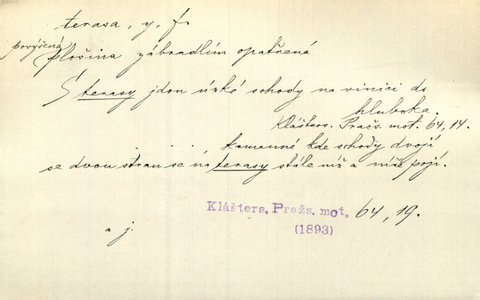 terasa, y, f.
povýšená
plošina zábradlím opatřená
S terasy jdou úzké schody na vinici do
hluboka.
Klášters. Pražs. mot. 64, 14.
. . . , kamenné kde schody dvojí
se dvou stran se na terasy stále níž a níž pojí.
Klášters. Pražs. mot. 64, 19.
(1893)
a j.